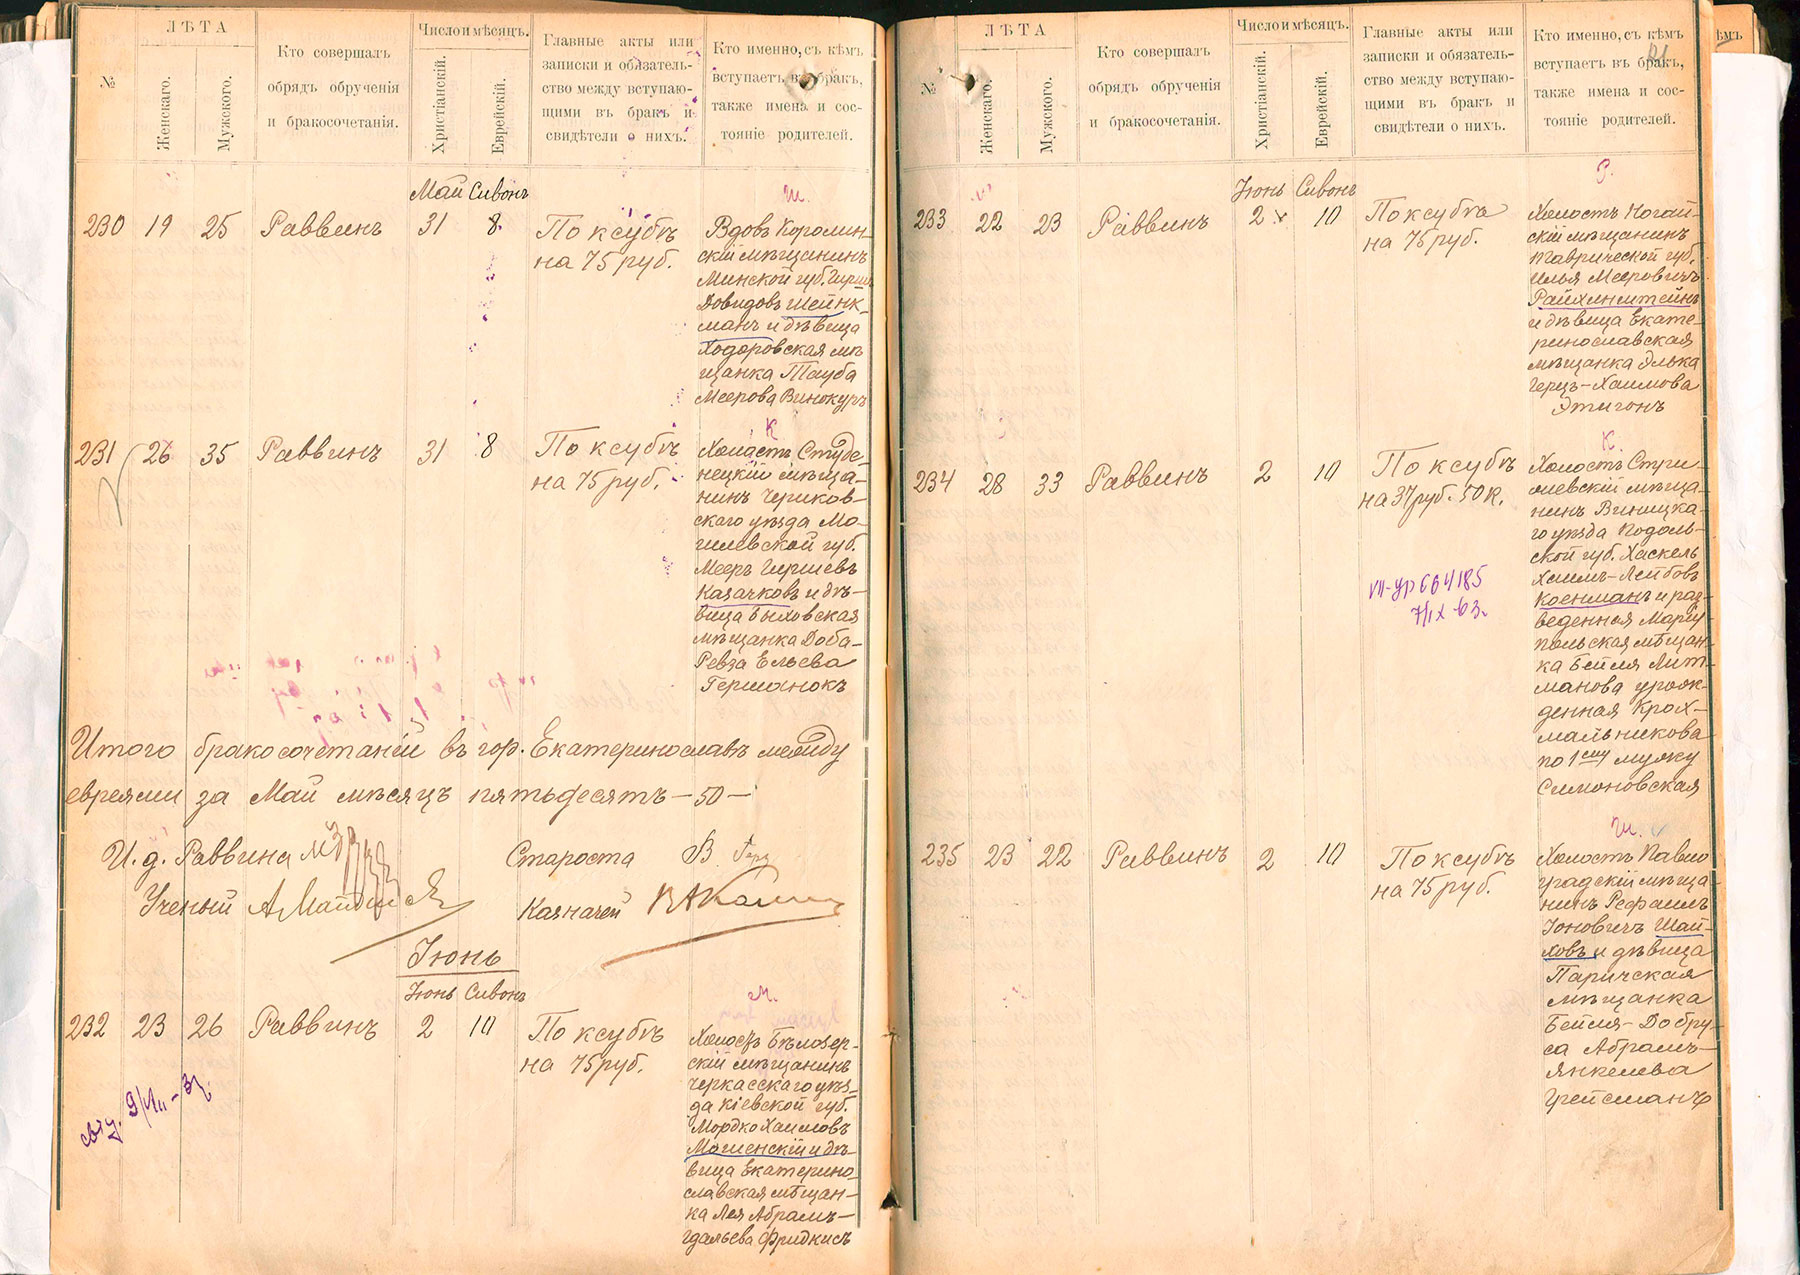 №
ЛѢТА
Женскаго.
Мужского.
Кто совершалъ
обрядъ обрученія
и бракосочетанія.
Число и мѣсяцъ.
Христіанскій.
Еврейскій.
Главные акты или
записки и обязатель-
ство между вступаю-
щими въ бракъ и
свидѣтели о нихъ.
Кто именно, съ кѣмъ
вступаетъ въ бракъ,
также имена и сос-
тояніе родителей.
Май Сивонъ
Ш.
230 19 25 Раввинъ 31 8
По ксубѣ
на 75 руб.
Вдовъ Королин-
скій мѣщанинъ
Минской губ. Гирш
Довидовъ Шейнк-
манъ и дѣвица
Ходоровская мѣ
щанка Тауба
Меерова Винокуръ
К
231 26 35 Раввинъ 31 8
По ксубѣ
на 75 руб.
Холостъ Студе-
нецкій мѣща-
нинъ Чериков-
скаго уѣзда Мо-
гилевской губ.
Мееръ Гиршевъ
Казачковъ и дѣ-
вица Быховская
мѣщанка Доба-
Ревза Ельева
Гершанокъ
Итого бракосочетаній въ гор. Екатеринославѣ между
евреями за Май мѣсяцъ пятьдесятъ – 50 –
И. д. Раввина
Староста
Ученый
Казначей
Іюнь
Іюнь Сивонъ
М.
232 23 26 Раввинъ 2 10
По ксубѣ
на 75 руб.
Холостъ Бѣлозер-
скій мѣщанинъ
Черкасскаго уѣз-
да Кіевской губ.
Мордко Хаимовъ
Мошенскій и дѣ-
вица Екатерино-
славская мѣщан-
ка Лея Абрамъ-
Гдальева Фридкисъ
№
ЛѢТА
Женскаго.
Мужского.
Кто совершалъ
обрядъ обрученія
и бракосочетанія.
Число и мѣсяцъ.
Христіанскій.
Еврейскій.
Главные акты или
записки и обязатель-
ство между вступаю-
щими въ бракъ и
свидѣтели о нихъ.
Кто именно, съ кѣмъ
вступаетъ въ бракъ,
также имена и сос-
тояніе родителей.
Іюнь Сивонъ
Р.
233 22 23 Раввинъ 2 10
По ксубѣ
на 75 руб.
Холостъ Ногай-
скій мѣщанинъ
Таврической губ.
Илья Мееровичъ
Райхинштейнъ
и дѣвица Екате-
ринославская
мѣщанка Элька
Герцъ-Хаимова
Этигонъ
К.
234 28 33 Раввинъ 2 10
По ксубѣ
на 37 руб. 50 к.
Холостъ Стри-
жевскій мѣща-
нинъ Виницка-
го уѣзда Подоль-
ской губ. Хаскель
Хаимъ-Лейбовъ
Коенманъ и раз-
веденная Маріу
польская мѣщан-
ка Бейля Лит-
манова урож-
денная Крох-
мальникова
по 1ому мужу
Симоновская
7/IX-63г.
Ш.
235 23 22 Раввинъ 2 10
По ксубѣ
на 75 руб.
Холостъ Павло
градскій мѣща-
нинъ Рефаилъ
Іоновичъ Шай-
ховъ и дѣвица
Паричская
мѣщанка
Бейля-Добру-
са Абрамъ-
Янкелева
Грейсманъ